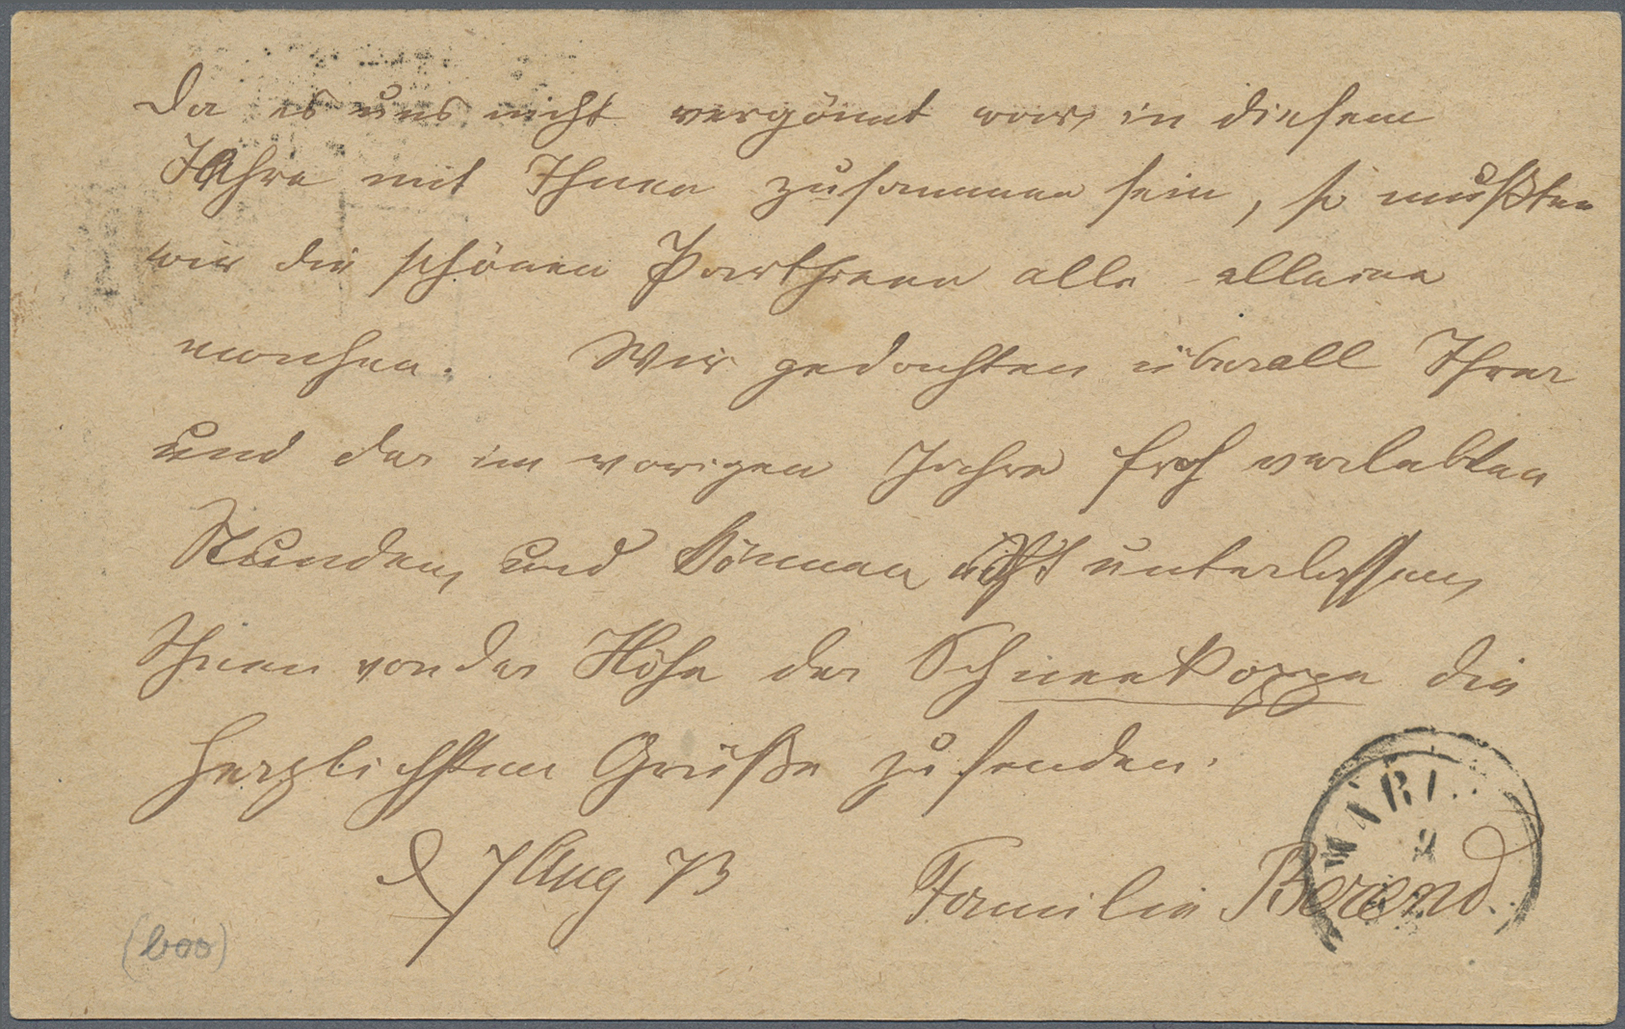 Da es uns nicht vergönnt war, in diesem
Jahre mit Ihnen zusammen sein, so mußten
wir die schönen Parthieen alle alleine
machen. Wir gedachten überall Ihrer
und der im vorigen Jahre froh verlebten
Stunden, und können nicht unterlassen,
Ihnen von der Höhe der Schneekoppe die
herzlichsten Grüße zu senden.
d 7 Aug 73 Familie Berend.
(600)